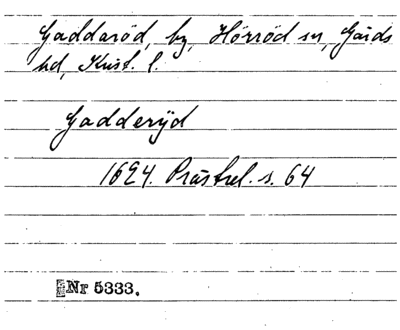 Gaddaröd, by, Hörröd sn, Gärds
hd, Krist. l.
Gadderÿd
1624. Prästrel. s. 64
Nr 5333.